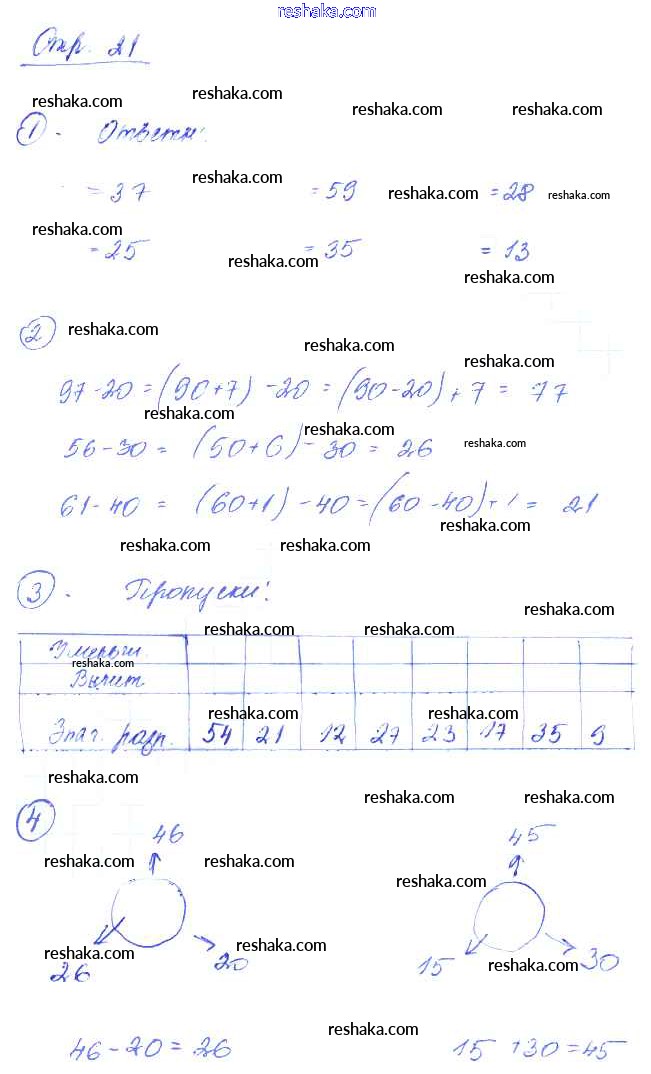 reshaka.com
Стр. 21
reshaka.com reshaka.com reshaka.com reshaka.com
1. Ответы:
reshaka.com
= 37 = 59 reshaka.com = 28 reshaka.com
reshaka.com
= 25 = 35 = 13
reshaka.com reshaka.com
2 reshaka.com reshaka.com reshaka.com
97-20 = (90+7) - 20 = (90-20) + 7 = 77
reshaka.com reshaka.com
56-30 = (50+6) - 30 = 26 reshaka.com
61-40 = (60+1) - 40 = (60-40) + 1 = 21
reshaka.com
reshaka.com reshaka.com
3. Пропуски:
reshaka.com
reshaka.com reshaka.com
Уменьш.
reshaka.com
Вычит
reshaka.com reshaka.com
Знач. разн. 54 21 12 27 23 17 35 9
reshaka.com
reshaka.com reshaka.com
4
46 45
reshaka.com reshaka.com
reshaka.com
reshaka.com reshaka.com
26 20 15 reshaka.com 30
reshaka.com
46-20=26 15+30=45